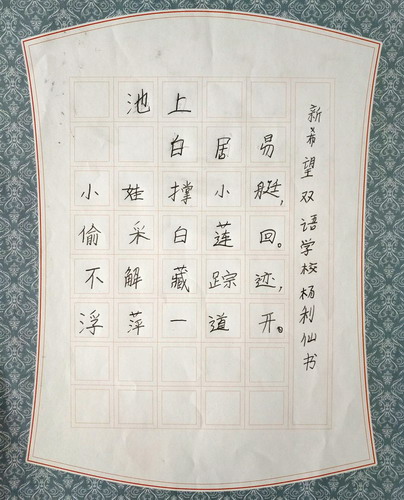 池上
白居易
小娃撑小艇,
偷采白莲回。
不解藏踪迹,
浮萍一道开。
新希望双语学校杨利仙书